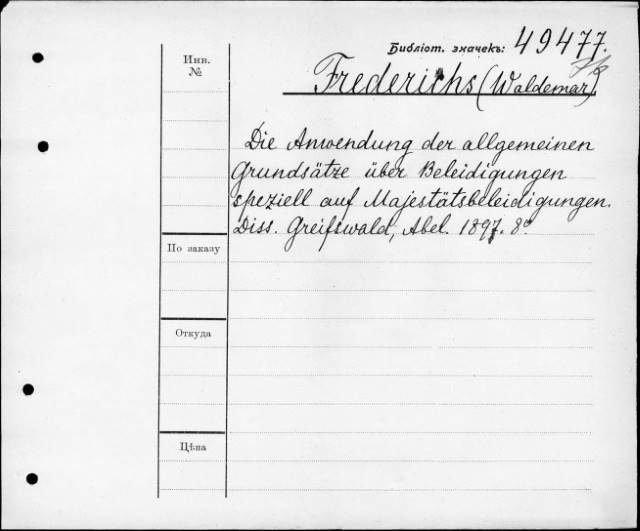 Библіот. значекъ: 49477.
Инв.
№
Frederichs (Waldemar)
Die Anwendung der allgemeinen
Grundsätze über Beleidigungen
speziell auf Majestätsbeleidigungen.
Diss. Greifswald, Abel. 1897. 8°.
По заказу
Откуда
Цѣна